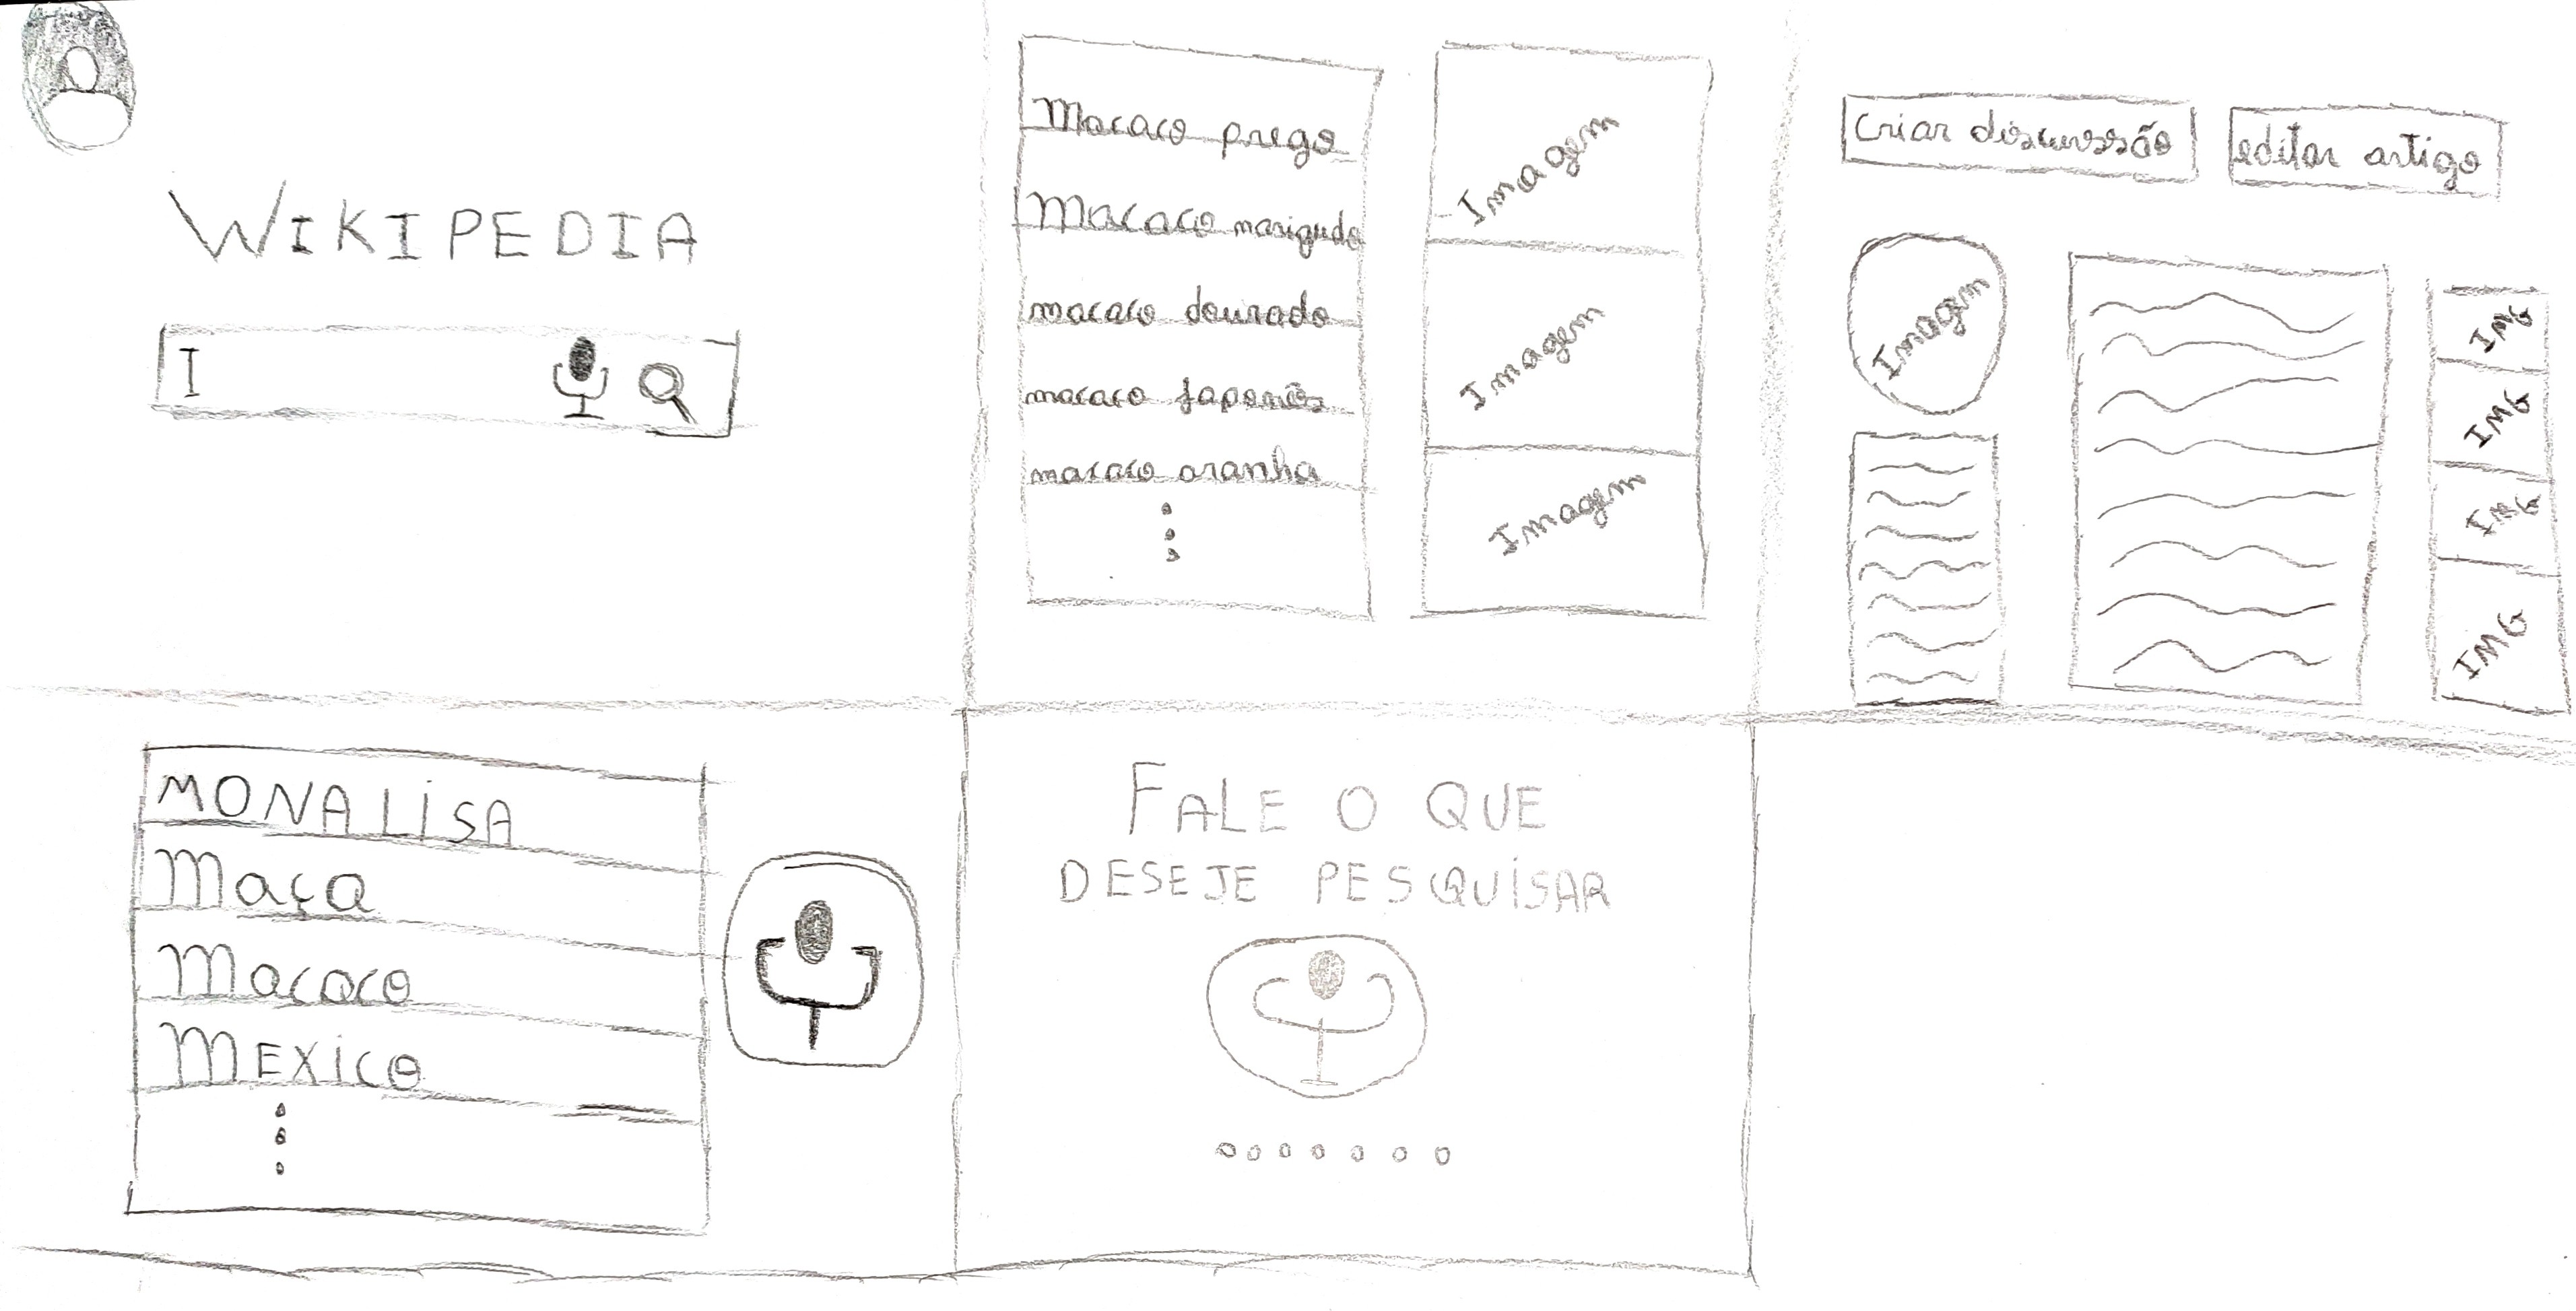 WIKIPEDIA
Macaco prego
Macaco narigudo
macaco dourado
macaco Japonês
macaco aranha
Imagem
Imagem
Imagem
criar discussão
editar artigo
Imagem
IMG
IMG
IMG
IMG
MONALiSA
Maça
Macaco
MEXiCO
FALE O QUE
DESEJE PESQUiSAR